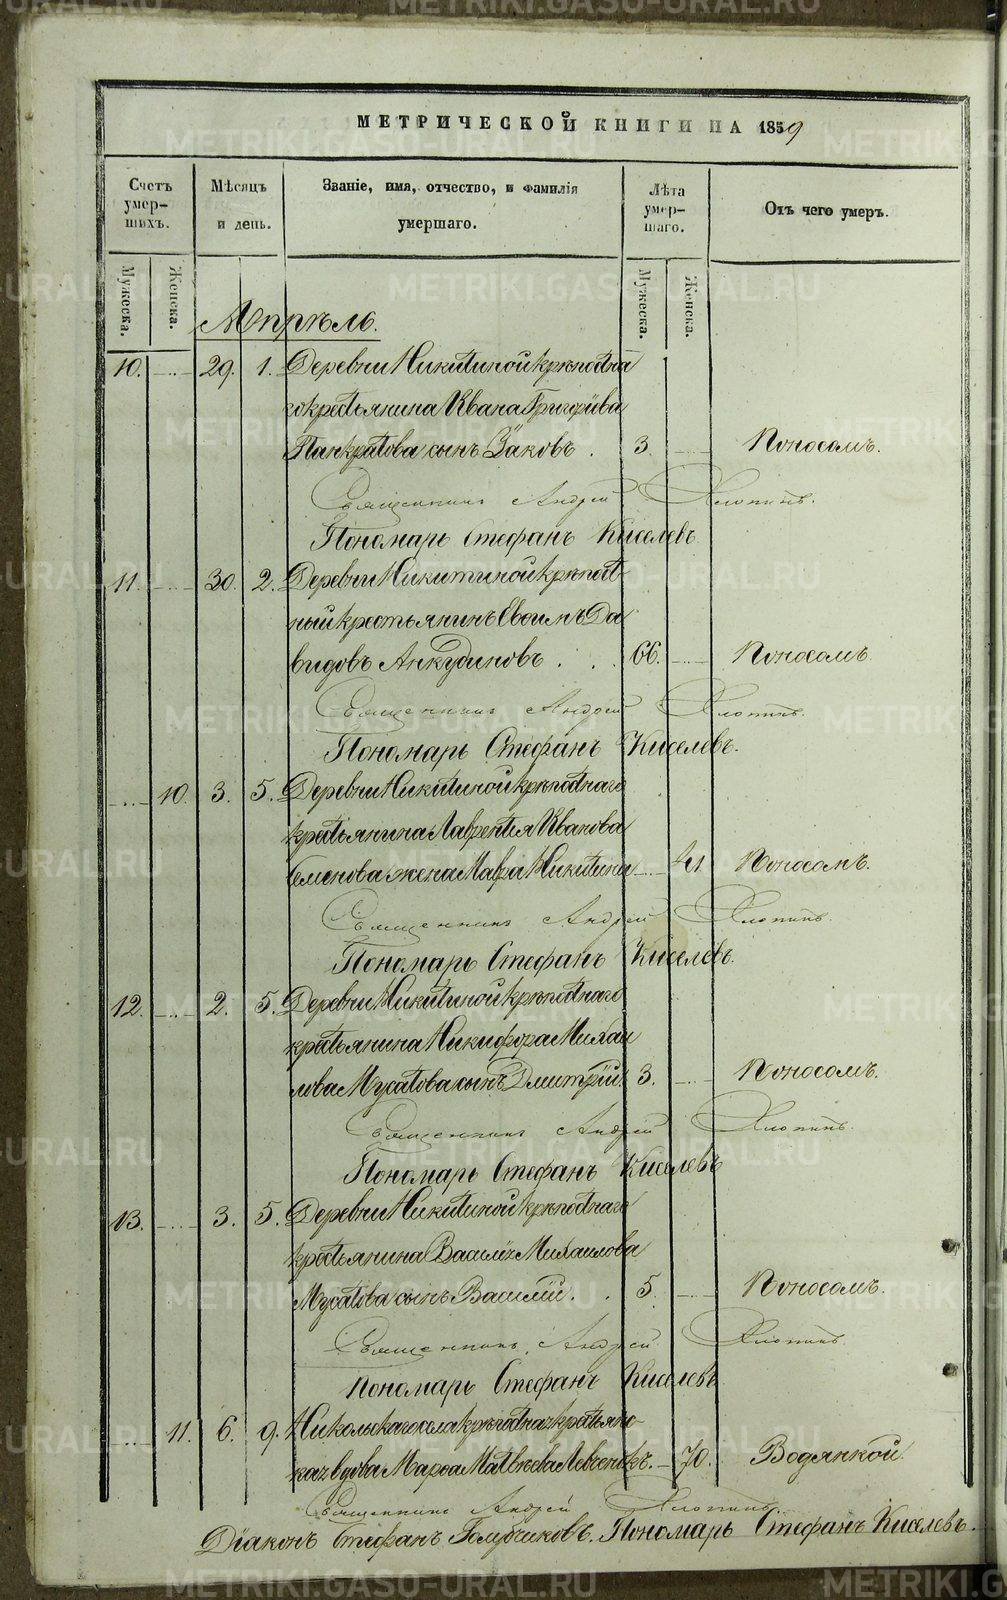 METRIKI.GASO-URAL.RU
МЕТРИЧЕСКОЙ КНИГИ НА 1859
Счетъ умер-шихъ. Мѣсяцъ и день. Званіе, имя, отчество, и фамилія умершаго. Лѣта умер-шаго. Отъ чего умеръ.
Мужеска. Женска. Мужеска. Женска.
Апрѣль.
10. 29. 1. Деревни Никитиной крѣпостна
го крестьянина Ивана Григорьева
Панкратова сынъ Яковъ. 3. Поносомъ.
Священникъ Андрей Хлопинъ.
Пономарь Стефанъ Киселевъ
11. 30. 2. Деревни Никитиной крѣпост-
ный крестьянинъ Евѳимъ Да
видовъ Анкудиновъ . . . 66. Поносомъ.
Священникъ Андрей Хлопинъ.
Пономарь Стефанъ Киселевъ.
10. 3. 5. Деревни Никитиной крѣпостнаго
крестьянина Лаврентія Иванова
Семенова жена Мавра Никитина 41 Поносомъ.
Священникъ Андрей Хлопинъ.
Пономарь Стефанъ Киселевъ.
12. 2. 5. Деревни Никитиной крѣпостнаго
крестьянина Никифора Михаи
лова Мусатова сынъ Дмитрій 3. Поносомъ.
Священникъ Андрей Хлопинъ.
Пономарь Стефанъ Киселевъ
13. 3. 5. Деревни Никитиной крѣпостнаго
крестьянина Василія Михаилова
Мусатова сынъ Василій. . 5. Поносомъ.
Священникъ Андрей Хлопинъ.
Пономарь Стефанъ Киселевъ
11. 6. 9. Никольскаго села крѣпостная крестьян-
ка вдова Марѳа Матвѣева 70. Водянкой.
Священникъ Андрей Хлопинъ
Діаконъ Стефанъ Голубчиковъ. Пономарь Стефанъ Киселевъ.